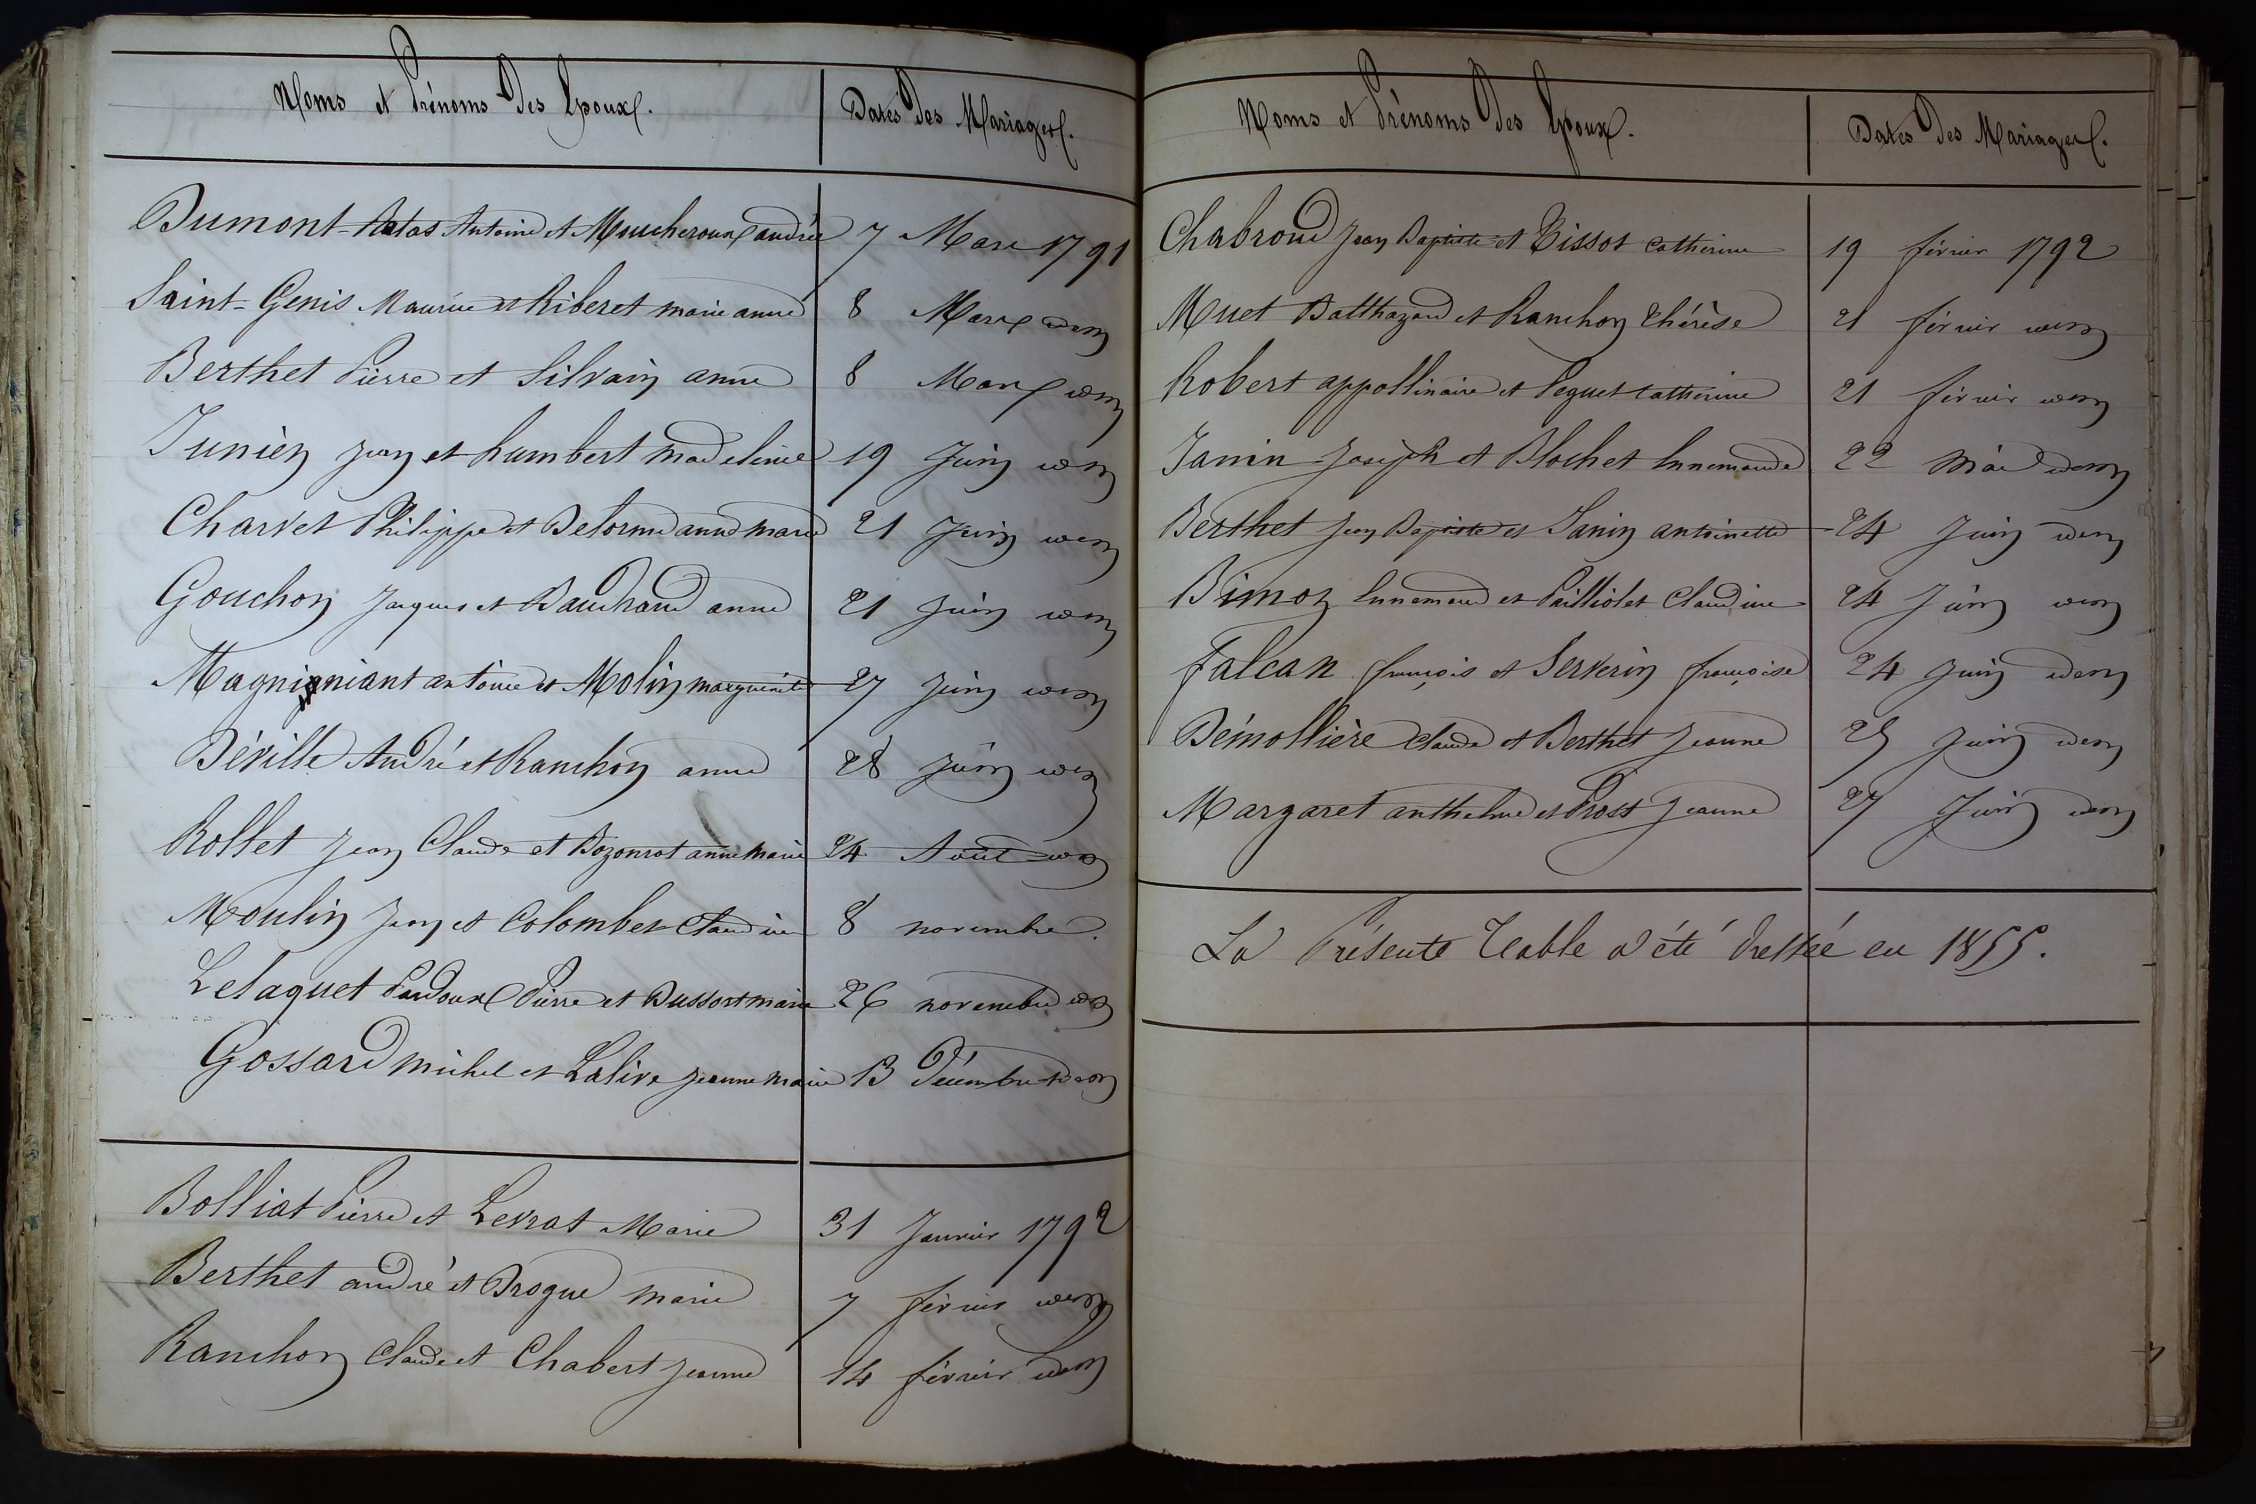 Noms et Prénoms Des Epoux.
Dates Des Mariages.
Dumont Antoine et Moucheroux andrée 7 Mars 1791
Saint-Genis Maurice et Riberet marie anne 8 Mars idem
Berthet Pierre et Silvain anne 8 Mars idem
Junien Jean et humbert madeleine 19 Juin idem
Charvet Philippe et Delorme anne marie 21 Juin idem
Gouchon Jacques et Baudrand anne 21 Juin idem
antoine et Molin marguerite 27 Juin idem
Béville André et Ranchon anne 28 Juin idem
Rollet Jean Claude et Bozonrot anne marie 24 Août idem
Moulin Jean et Colombet Claudine 8 novembre.
Lelaquet Pardoux Pierre et Dussort marie 26 novembre idem
Gossard michel et Lalive Jeanne marie 13 Décembre idem
Bolliat Pierre et Levrat Marie 31 Janvier 1792
Berthet andré et Drogue marie 7 février idem
Ranchon Claude et Chabert Jeanne 14 février idem
Noms et Prénoms Des Epoux.
Dates Des Mariages.
Chabroud Jean Baptiste et Tissot Catherine 19 février 1792
Muet Balthazard et Ranchon Thérèse 21 février idem
Robert appollinaire et Peguet Catherine 21 février idem
Janin Joseph et Blochet Ennemonde 22 mai idem
Berthet Jean Baptiste et Janin antoinette 24 Juin idem
Bimoz Ennemond et Pailliolet Claudine 24 Juin idem
Falcan françois et Serverin françoise 24 Juin idem
Démollière Claude et Berthet Jeanne 25 Juin idem
Margaret anthelme et Prost Jeanne 27 Juin idem
La Présente Table a été dressée en 1855.